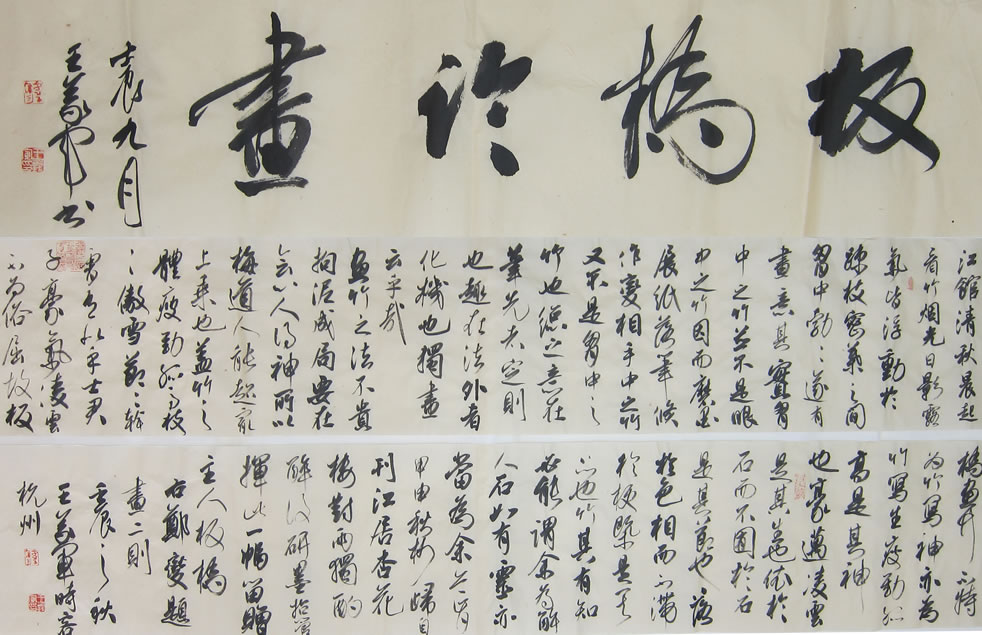 板橋論畫
壬辰九月
王義軍書
江館清秋晨起
看竹烟光日影露
氣皆浮動於
疎枝密葉之間
胸中勃勃遂有
畫意其實胸
中之竹並不是眼
中之竹因而磨墨
展紙落筆倏
作變相手中之竹
又不是胸中之
竹也總之意在
筆先者定則
也趣在法外者
化機也獨畫
云乎哉
畫竹之法不貴
拘泥成局要在
會心人得神所以
梅道人能超最
上乘也蓋竹之
體瘦勁孤高枝
枝傲雪節節幹
霄有似乎士君
子豪氣凌雲
不為俗屈故板
橋畫竹不特
為竹寫神亦為
竹寫生瘦勁孤
高是其神
也豪邁凌雲
是其生也依於
石而不囿於石
是其節也落
於色相而不滯
於梗概是其
品也竹其有知
必能謂余為解
人石如有靈亦
當為余首肯
甲申秋杪歸自
邗江居杏花
樓對雨獨酌
醉後研墨拈管
揮此一幅留贈
主人板橋
右鄭燮題
畫二則
壬辰之秋
王義軍時客
杭州